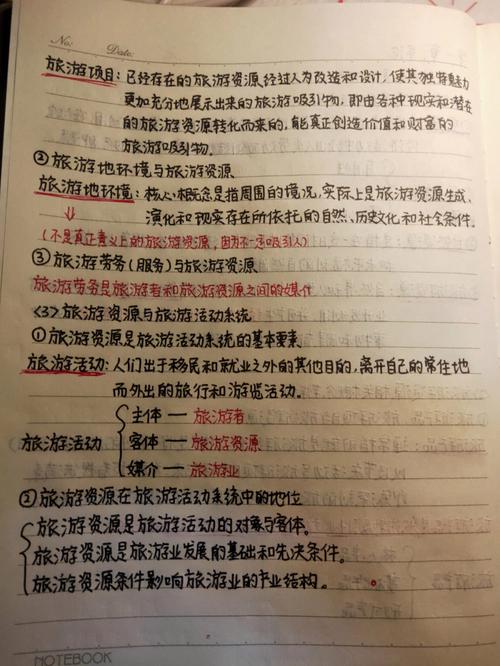 No:
Date:
旅游项目：已经存在的旅游资源经过人为改造和设计，使其独特魅力
更加充分地展示出来的旅游吸引物，即由各种现实和潜在
的旅游资源转化而来的，能真正创造价值和财富的
旅游吸引物。
②旅游地环境与旅游资源
旅游地环境：核心概念是指周围的境况，实际上是旅游资源生成、
演化和现实存在所依托的自然、历史文化和社会条件。
（不是真正意义上的旅游资源，因为不一定吸引人）
③旅游劳务（服务）与旅游资源
旅游劳务是旅游者和旅游资源之间的媒介
<3>旅游资源与旅游活动系统
①旅游资源是旅游活动系统的基本要素
旅游活动：人们出于移民和就业之外的其他目的，离开自己的常住地
而外出的旅行和游览活动。
主体 — 旅游者
旅游活动 客体 — 旅游资源
媒介 — 旅游业
②旅游资源在旅游活动系统中的地位
旅游资源是旅游活动的对象与客体。
旅游资源是旅游业发展的基础和先决条件。
旅游资源条件影响旅游业的产业结构。
NOTEBOOK